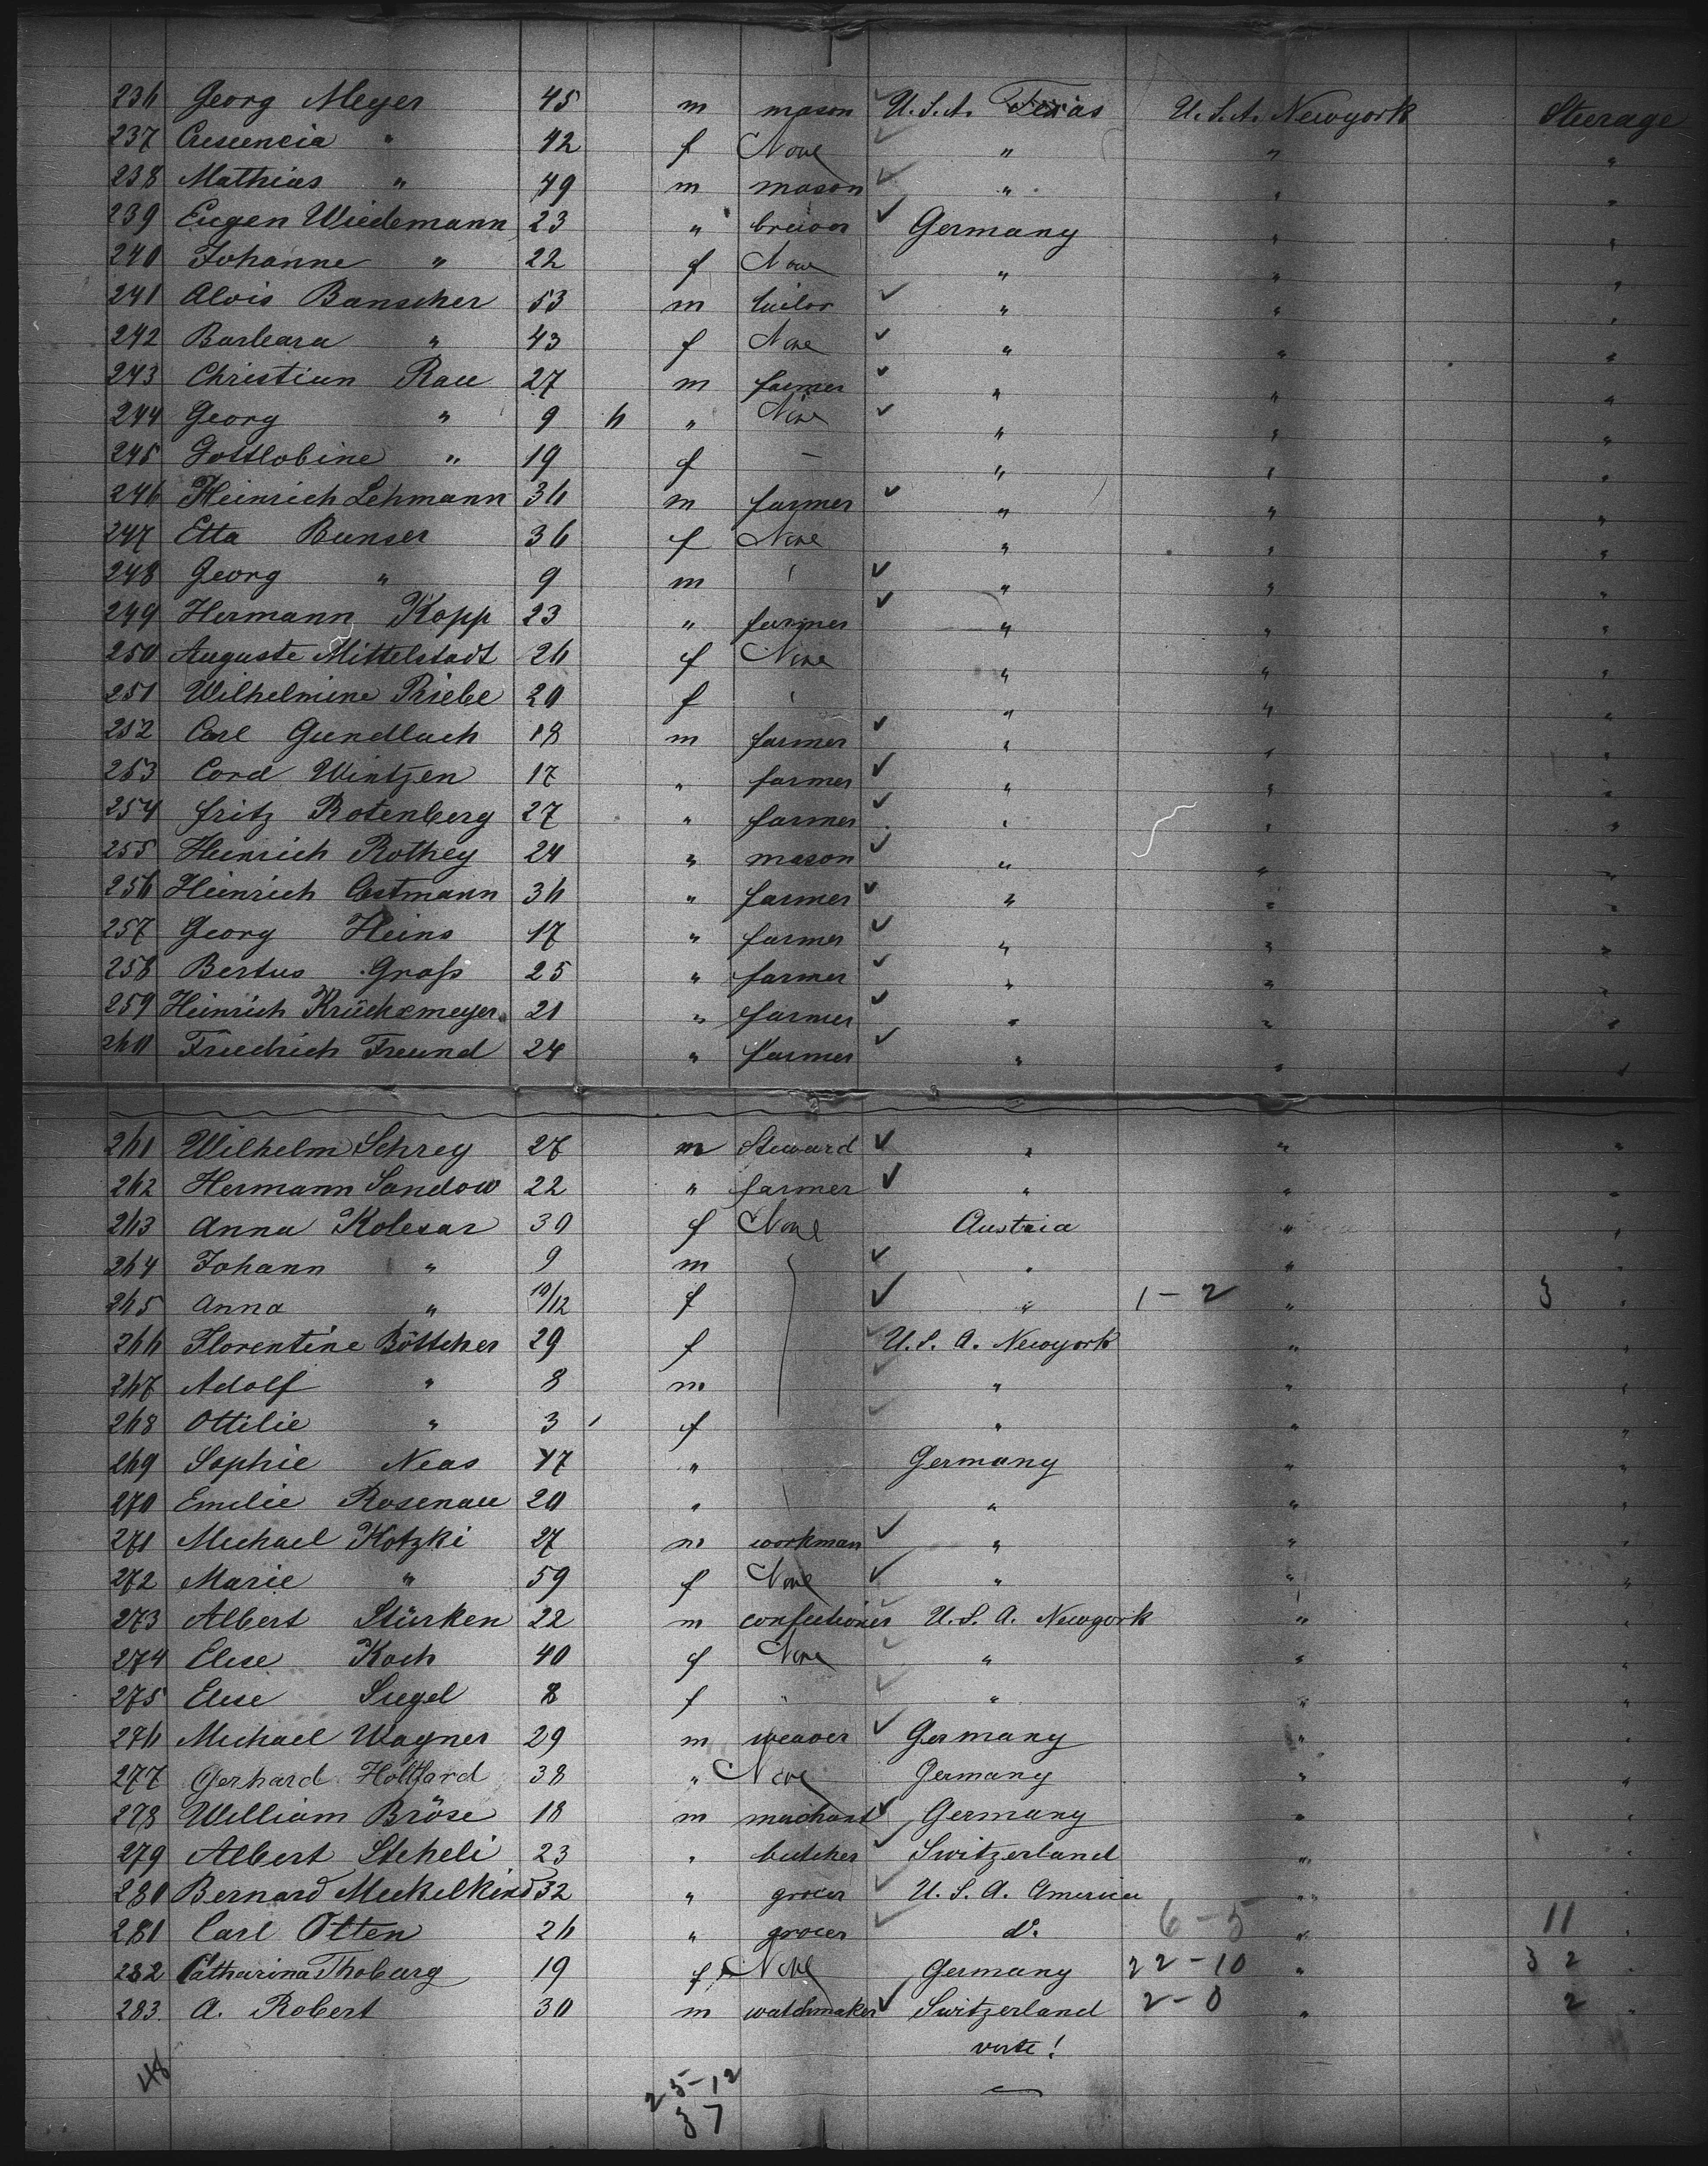 236 Georg Meyer 45 m mason U.S.A. Texas U.S.A. Newyork Steerage
237 Crescencia " 42 f None " " "
238 Mathias " 49 m mason " " "
239 Eugen Wiedemann 23 " brewer Germany " "
240 Johanne " 22 f None " " "
241 Alois Banscher 53 m tailor " " "
242 Barbara " 43 f None " " "
243 Christian Rau 27 m farmer " " "
244 Georg " 9 6 " None " " "
245 Gottlobine " 19 f – " " "
246 Heinrich Lehmann 36 m farmer " " "
247 Etta Bunser 36 f None " " "
248 Georg " 9 m " " "
249 Hermann Kopp 23 " farmer " " "
250 Auguste Mittelstadt 26 f None " " "
251 Wilhelmine Priebe 20 f " " "
252 Carl Gundlach 18 m farmer " " "
253 Cord Wintjen 17 " farmer " " "
254 Fritz Rotenberg 27 " farmer " " "
255 Heinrich Rothey 24 " mason " " "
256 Heinrich Oestmann 36 " farmer " " "
257 Georg Heins 17 " farmer " " "
258 Bertus Groß 25 " farmer " " "
259 Heinrich 21 " farmer " " "
260 Friedrich Freund 24 " farmer " " "
261 Wilhelm Schrey 27 m Steward " " "
262 Hermann Sandow 22 " farmer " " "
263 Anna Kolesar 30 f None Austria " "
264 Johann " 9 m " " "
265 Anna " 10/12 f " 1–2 " 3 "
266 Florentine Böttcher 29 f U.S.A. Newyork " "
267 Adolf " 8 m " " "
268 Ottilie " 3 f " " "
269 Sophie Neas 47 " Germany " "
270 Emilie Rosenau 20 " " " "
271 Michael Kotzki 27 m workman " " "
272 Marie " 59 f None " " "
273 Albert Stürken 22 m confectioner U.S.A. Newyork " "
274 Elise Koch 40 f None " " "
275 Elise Siegel 8 f " " " "
276 Michael Wagner 29 m weaver Germany " "
277 Gerhard Holtfard 38 " None Germany " "
278 William Bröse 18 m merchant Germany " "
279 Albert Steheli 23 " butcher Switzerland " "
280 Bernard Meckelkind 32 " grocer U.S.A. America " "
281 Carl Otten 26 " grocer do. 6–5 " 11 "
282 Catharina Thoburg 19 f None Germany 22–10 " 32 "
283. A. Robert 30 m watchmaker Switzerland 2–0 " 2 "
verte!
48
25–12
37